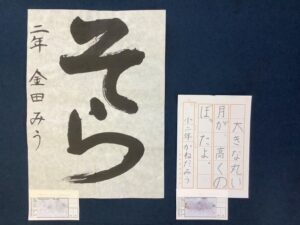 そら
二年 金田みう
大きな丸い
月が高くの
ぼったよ。
小二年かねだみう